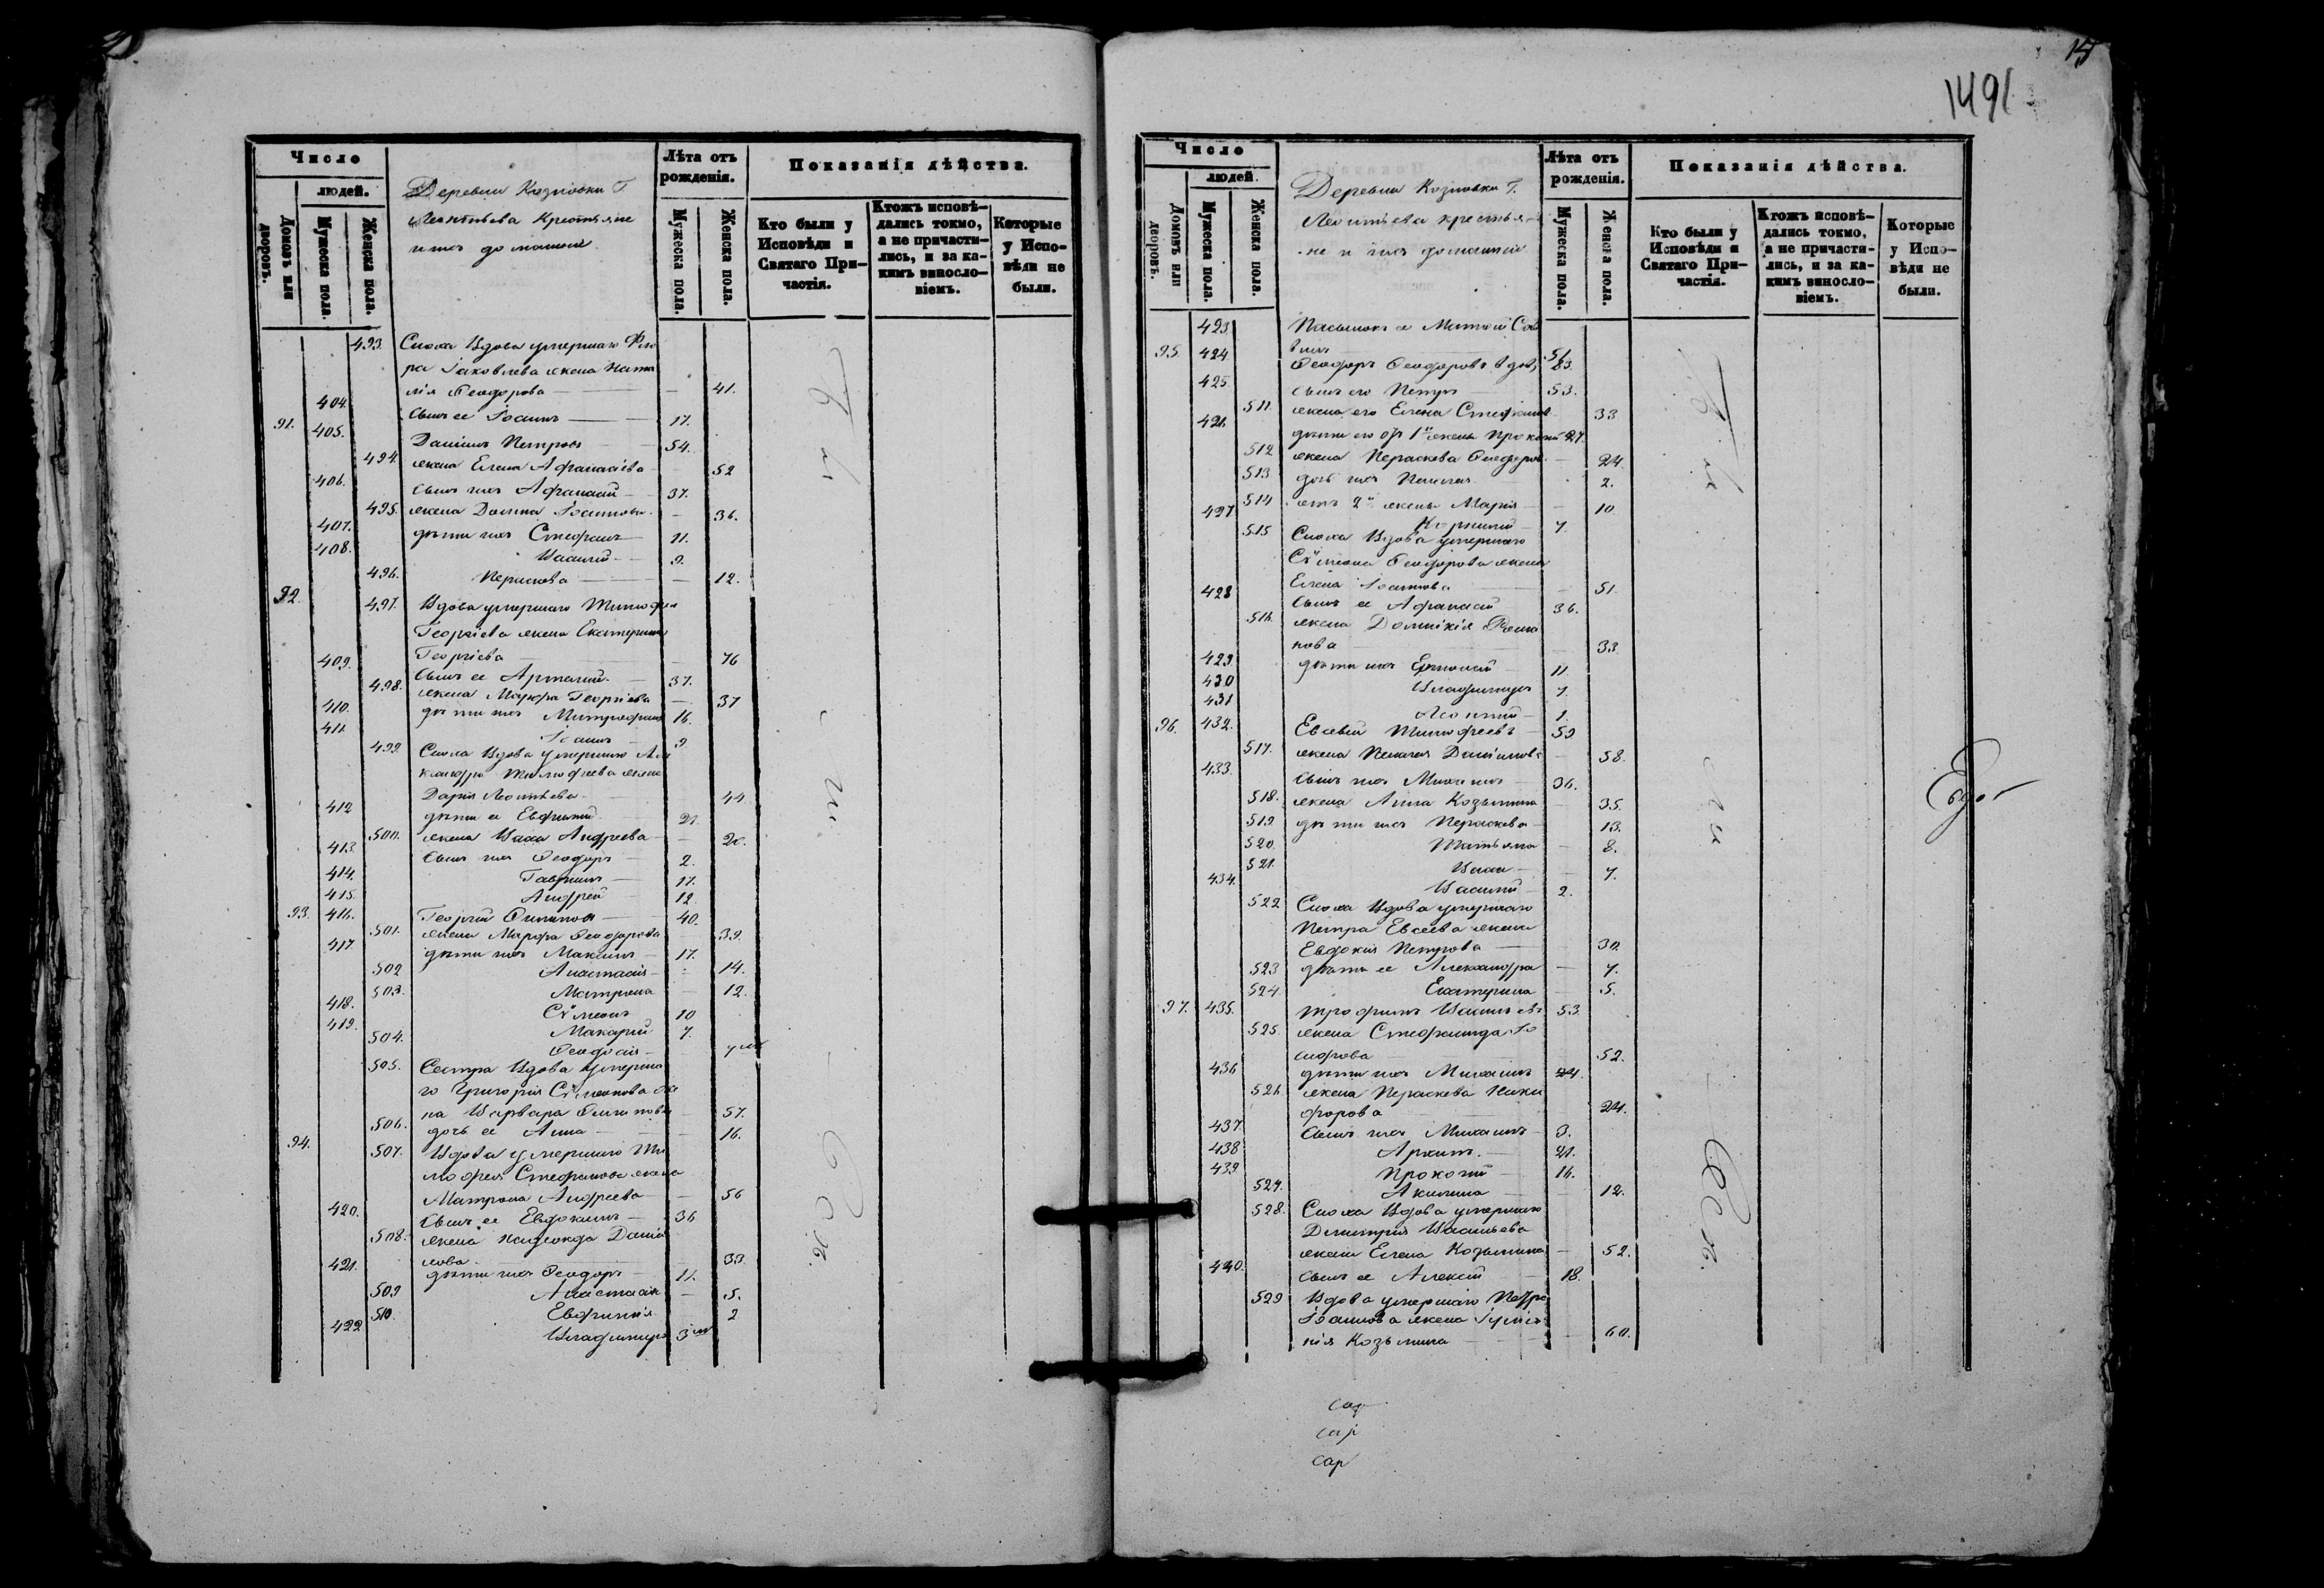 Число
людей.
Домовъ или дворовъ.
Мужеска пола.
Женска пола.
Деревни Г.
Леонтьева Крестьяне
и ихъ домашніе
Лѣта отъ рожденія.
Мужеска пола.
Женска пола.
Показанія дѣйства.
Кто были у Исповѣди и Святаго Причастія.
Ктожъ исповѣдались токмо, а не причастились, и за какимъ винословіемъ.
Которые у Исповѣди не были.
493. Сноха Вдова умершаго Фло
ра Іаковлева жена Ната
лія Ѳеодорова — 41.
404. Сынъ ее Іоаннъ — 17.
91. 405. Даніилъ Петровъ 54.
494. жена Елена Афанасіева — 52
406. Сынъ ихъ Афанасій — 37.
495. жена Домна Іоаннова — 36.
407. дѣти ихъ Стефанъ — 11.
408. Василій — 9.
496. Параскева — 12.
92. 497. Вдова умершаго Тимофея
Георгіева жена Екатерина
Георгіева 76
409. Сынъ ее Артемій 37.
498. жена Марфа Георгіева — 37
410. дѣти ихъ Митрофанъ 16.
411. Іоаннъ — 9.
499 Сноха Вдова умершаго Але
ксандра Тимофеева жена
Дарія Леонтьева 44
412 дѣти ее Евфимій 21.
500. жена Васса Андреева — 20.
413. Сынъ ихъ Ѳеодоръ — 2.
414. Гавріилъ — 17.
415. Андрей — 12
93. 416. Георгій — 40.
501. жена Марфа Ѳеодорова 39.
417. дѣти ихъ Максимъ — 17.
502 Анастасія — 14.
503. Матрона — 12.
418. Сѵмеонъ 10
419. Макарій 7.
504. Ѳеодосія —
505. Сестра Вдова умерша
го Григорія Сѵмеонова же
на Варвара 57.
506. дочь ее Анна — 16.
94. 507. Вдова умершаго Ти
мофея Стефанова жена
Матрона Андреева — 56
420. Сынъ ее Евдокимъ — 36
508. жена Надежда Даніи
лова. 33.
421. дѣти ихъ Ѳеодоръ — 11.
509 Анастасія — 5.
510. Евфимія 2
422 Владиміръ 3 м
15
1491
Число
людей.
Домовъ или дворовъ.
Мужеска пола.
Женска пола.
Деревни Г.
Леонтьева крестья-
не и ихъ домашніе
Лѣта отъ рожденія.
Мужеска пола.
Женска пола.
Показанія дѣйства.
Кто были у Исповѣди и Святаго Причастія.
Ктожъ исповѣдались токмо, а не причастились, и за какимъ винословіемъ.
Которые у Исповѣди не были.
423. Пасынокъ ее Матѳій Сав
винъ 51.
95. 424. Ѳеодоръ Ѳеодоровъ вдов, 83.
425. Сынъ его Петръ 53.
511. жена его Елена Стефанов. 33
426. дѣти его отъ 1й жены Прокопій 27.
512 жена Параскева Ѳеодоров. — 24.
513. дочь ихъ Пелагія. 2.
514 отъ 2й жены Марія — 10
427 Корнилій — 7.
515 Сноха Вдова умершаго
Сѵмеона Ѳеодорова жена
Елена Іоаннова 51.
428 Сынъ ее Афанасій 36.
516. жена Домникія
нова — 33.
429 дѣти ихъ 11
430 Владиміръ 7.
431 Леонтій — 1.
96. 432. Евсевій Тимофеевъ — 59
517. жена Пелагія Даніилова — 58.
433. Сынъ ихъ Михаилъ — 36.
518. жена Анна Козьмина — 35.
519 дѣти ихъ Параскева — 13.
520. Татьяна — 8.
521. Васса — 7.
434. Василій — 2.
522 Сноха Вдова умершаго
Петра Евсеева жена
Евдокія Петрова — 30.
523 дѣти ее Александра — 7.
524 Екатерина — 5.
97. 435. Трофимъ Васильевъ 53.
525. жена Стефанида
52.
436 дѣти ихъ Михаилъ 24.
526. жена Параскева Ники
форова 24.
437 Сынъ ихъ Михаилъ — 3.
438 Архипъ. — 21.
439 Прокопій — 16.
527. Акилина — 12.
528. Сноха Вдова умершаго
Димитрія Васильева
жена Елена Козьмина — 52.
440. Сынъ ее Алексій 18.
529 Вдова умершаго Петра
Іоаннова жена
нія Козьмина — 60.